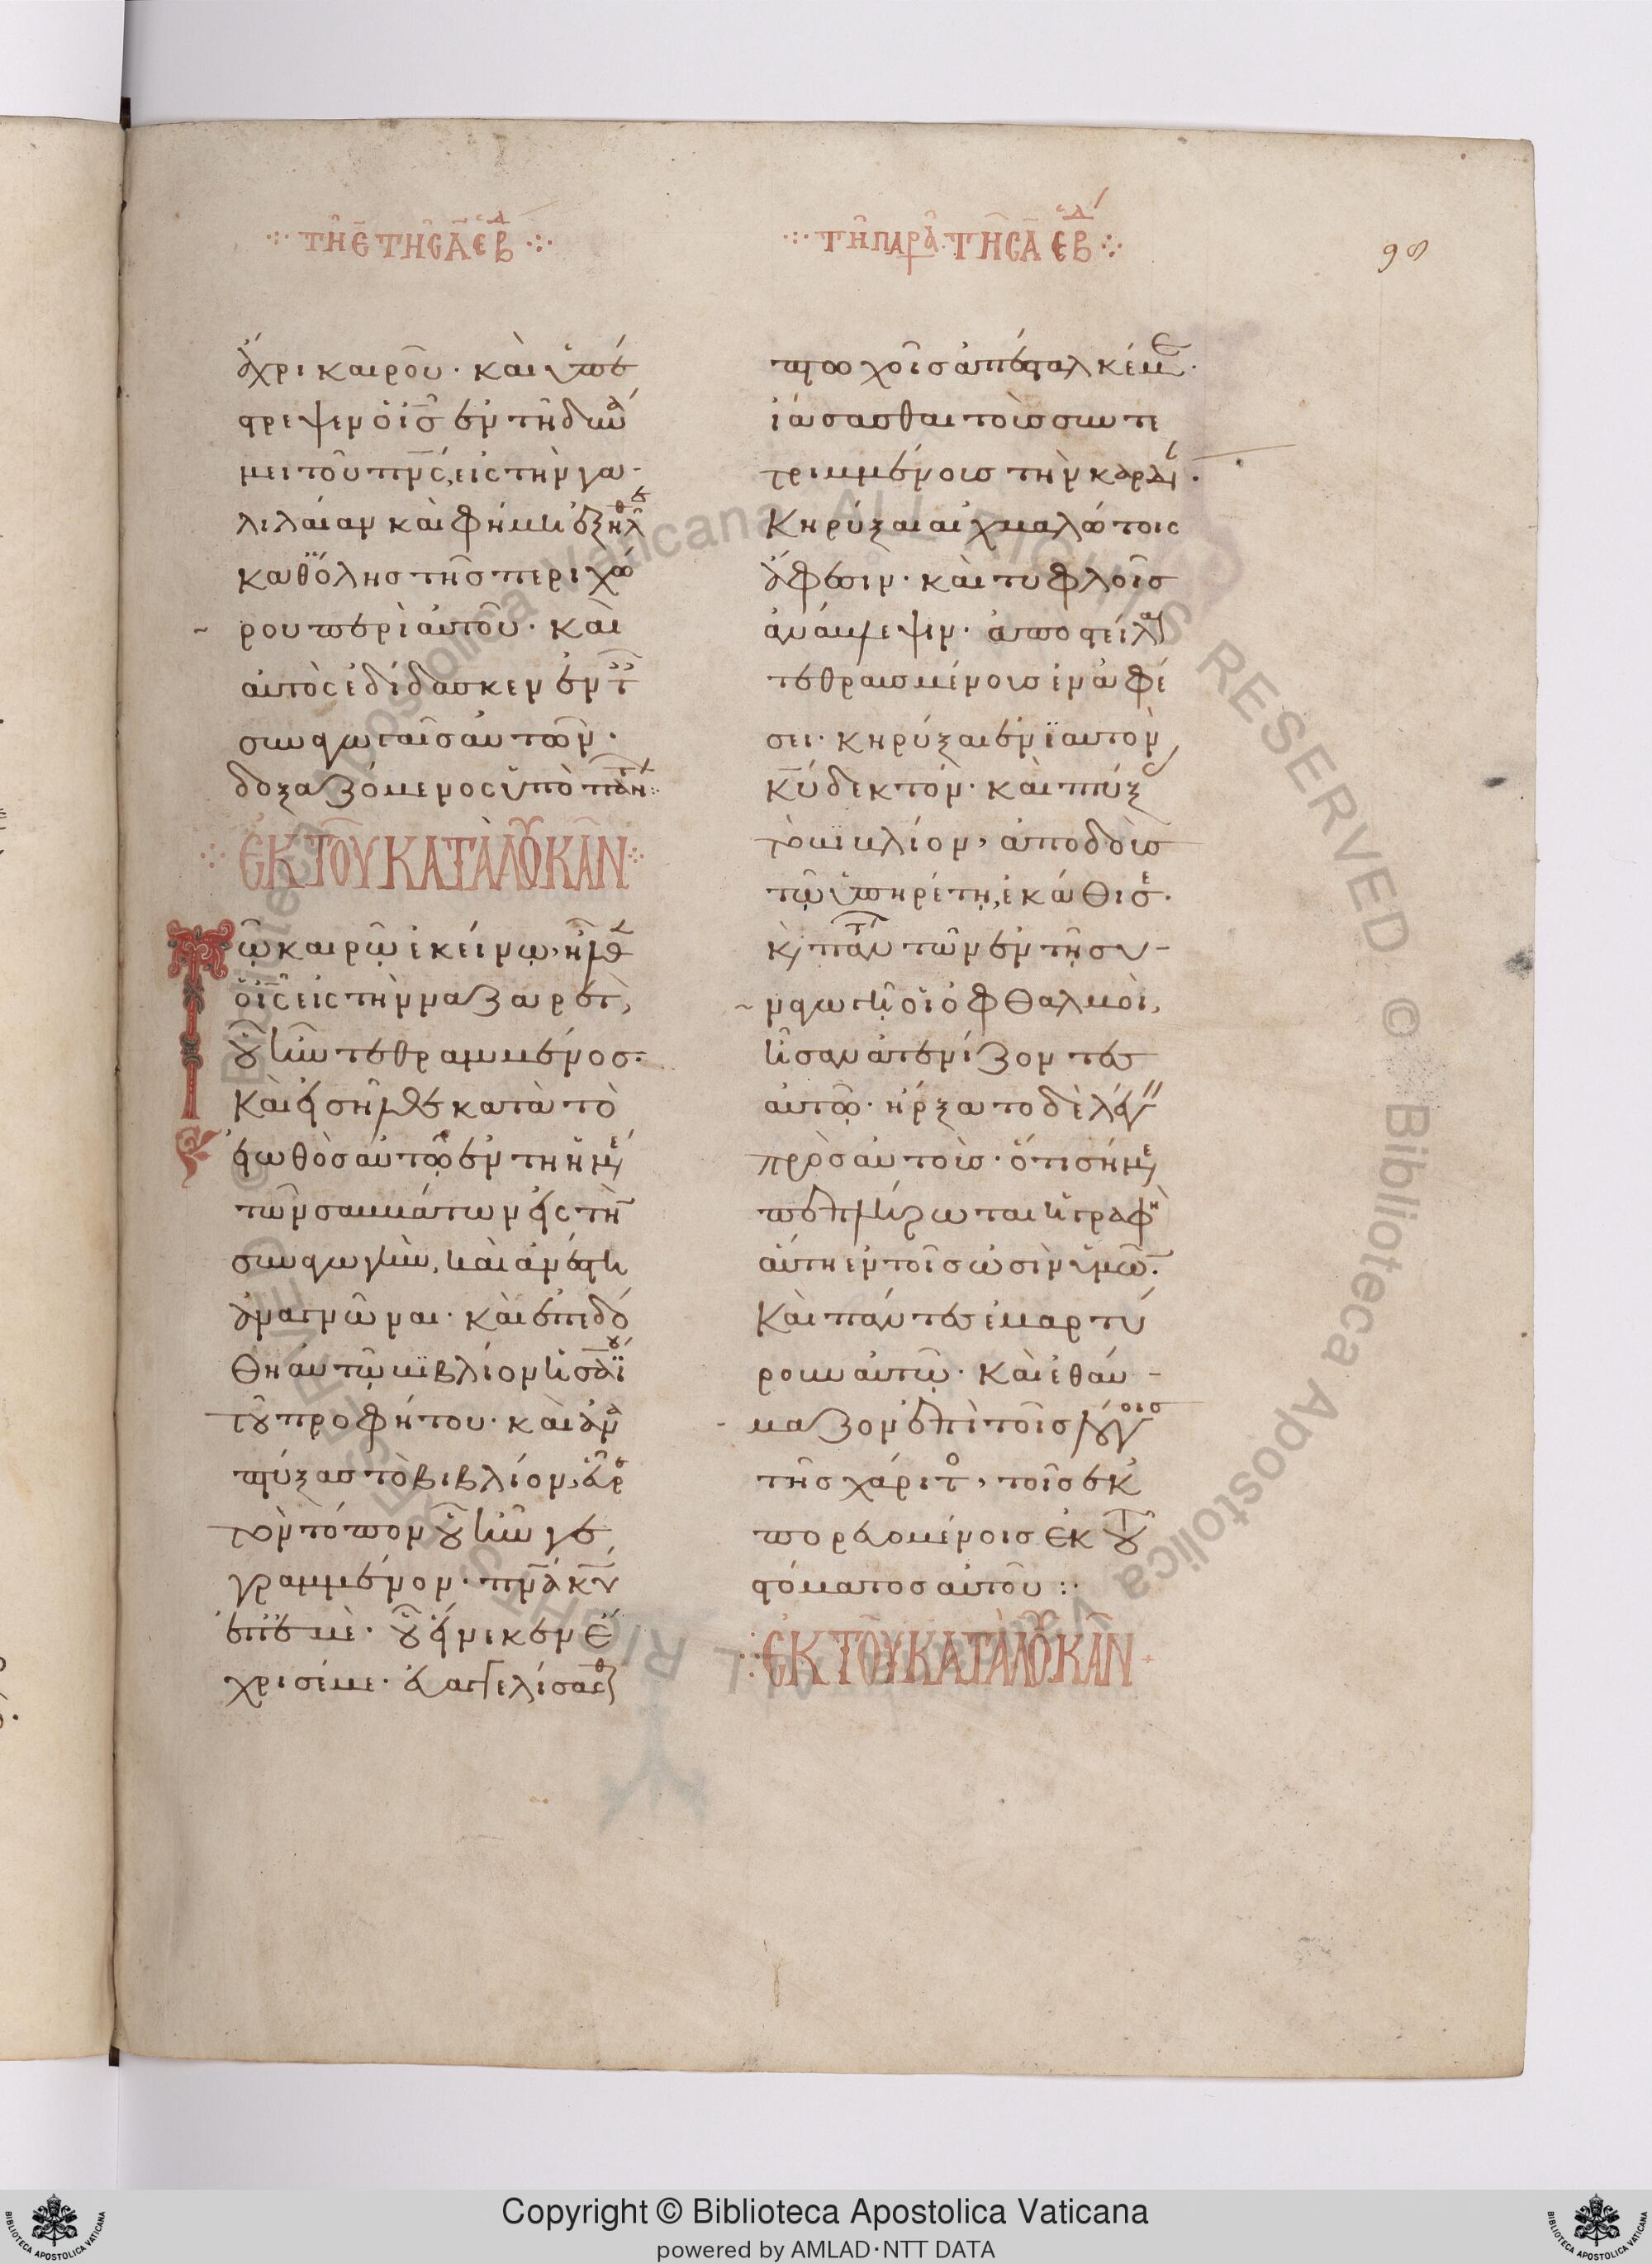 τῆ ε τῆς α ἑβδ
ἄχρι καιροῦ· καὶ ὑπέ
στρεψεν ὁ ις ἐν τῆ δυνά
μει του πνς, εἰς τὴν γα-
λιλαίαν καὶ φήμη ἐξῆλθε
καθ' ὅλης τῆς περιχώ
ρου περὶ αὐτοῦ· καὶ
αὐτὸς ἐδίδασκεν ἐν τ
συναγωγαῖς αὐτῶν·
δοξαζόμενος ὑπὸ πάντ
ἐκ τοῦ κατὰ λουκᾶν
Τῶ καιρῶ ἐκείνω, ἦλθε
ὁ ις εἰς τὴν ναζαρὲτ,
οὗ ἦν τεθραμμένος
Καὶ εἰσῆλθε κατὰ τὸ
εἰωθὸς αὐτῶ ἐν τη ἡμέ
τῶν σαββάτων εἰς τὴν
συναγωγὴν, καὶ ἀνέστη
ἀναγνῶναι· καὶ ἐπεδό
θη αὐτῶ βιβλίον ἡσαΐου
τοῦ προφήτου· καὶ ἀνα
πτύξας τὸ βιβλίον, εὗρε
τὸν τόπον οὗ ἦν γε
γραμμένον· πνα κυ
ἐπ' ἐμὲ· οὗ εἵνεκεν ἔ
χρισέ με· εὐαγγελίσασθ
τῆ παρα τῆς α ἑβδ
98
πτωχοῖς ἀπέσταλκέ με·
ἰάσασθαι τοὺς συντε
τριμμένους τὴν καρδί·
Κηρύξαι αἰχμαλώτοις
ἄφεσιν· καὶ τυφλοῖς
ἀνάβλεψιν· ἀποστεῖλαι
τεθραυσμένους ἐν ἀφέ
σει· κηρύξαι ἐνιαυτὸν
κυ δεκτόν· καὶ πτύξ
τὸ βιβλίον, ἀποδοὺς
τῶ ὑπηρέτη, ἐκάθισε·
κ, πάντων ἐν τῆ συ-
ναγωγῆ οἱ ὀφθαλμοὶ,
ἦσαν ἀτενίζοντες
αὐτῶ· ἤρξατο δὲ λέγ
πρὸς αὐτοὺς· ὅτι σήμε
πεπλήρωται ἡ γραφὴ
αὕτη ἐν τοῖς ὠσὶν ὑμῶ·
Καὶ πάντες ἐμαρτύ
ρουν αὐτῶ· Καὶ ἐθαύ-
μαζον ἐπὶ τοῖς λόγοις
τῆς χάριτο, τοῖς ἐκ
πορευομένοις ἐκ τοῦ
στόματος αὐτοῦ :·
ἐκ τοῦ κατὰ λουκᾶν
Copyright © Biblioteca Apostolica Vaticana
powered by AMLAD·NTT DATA